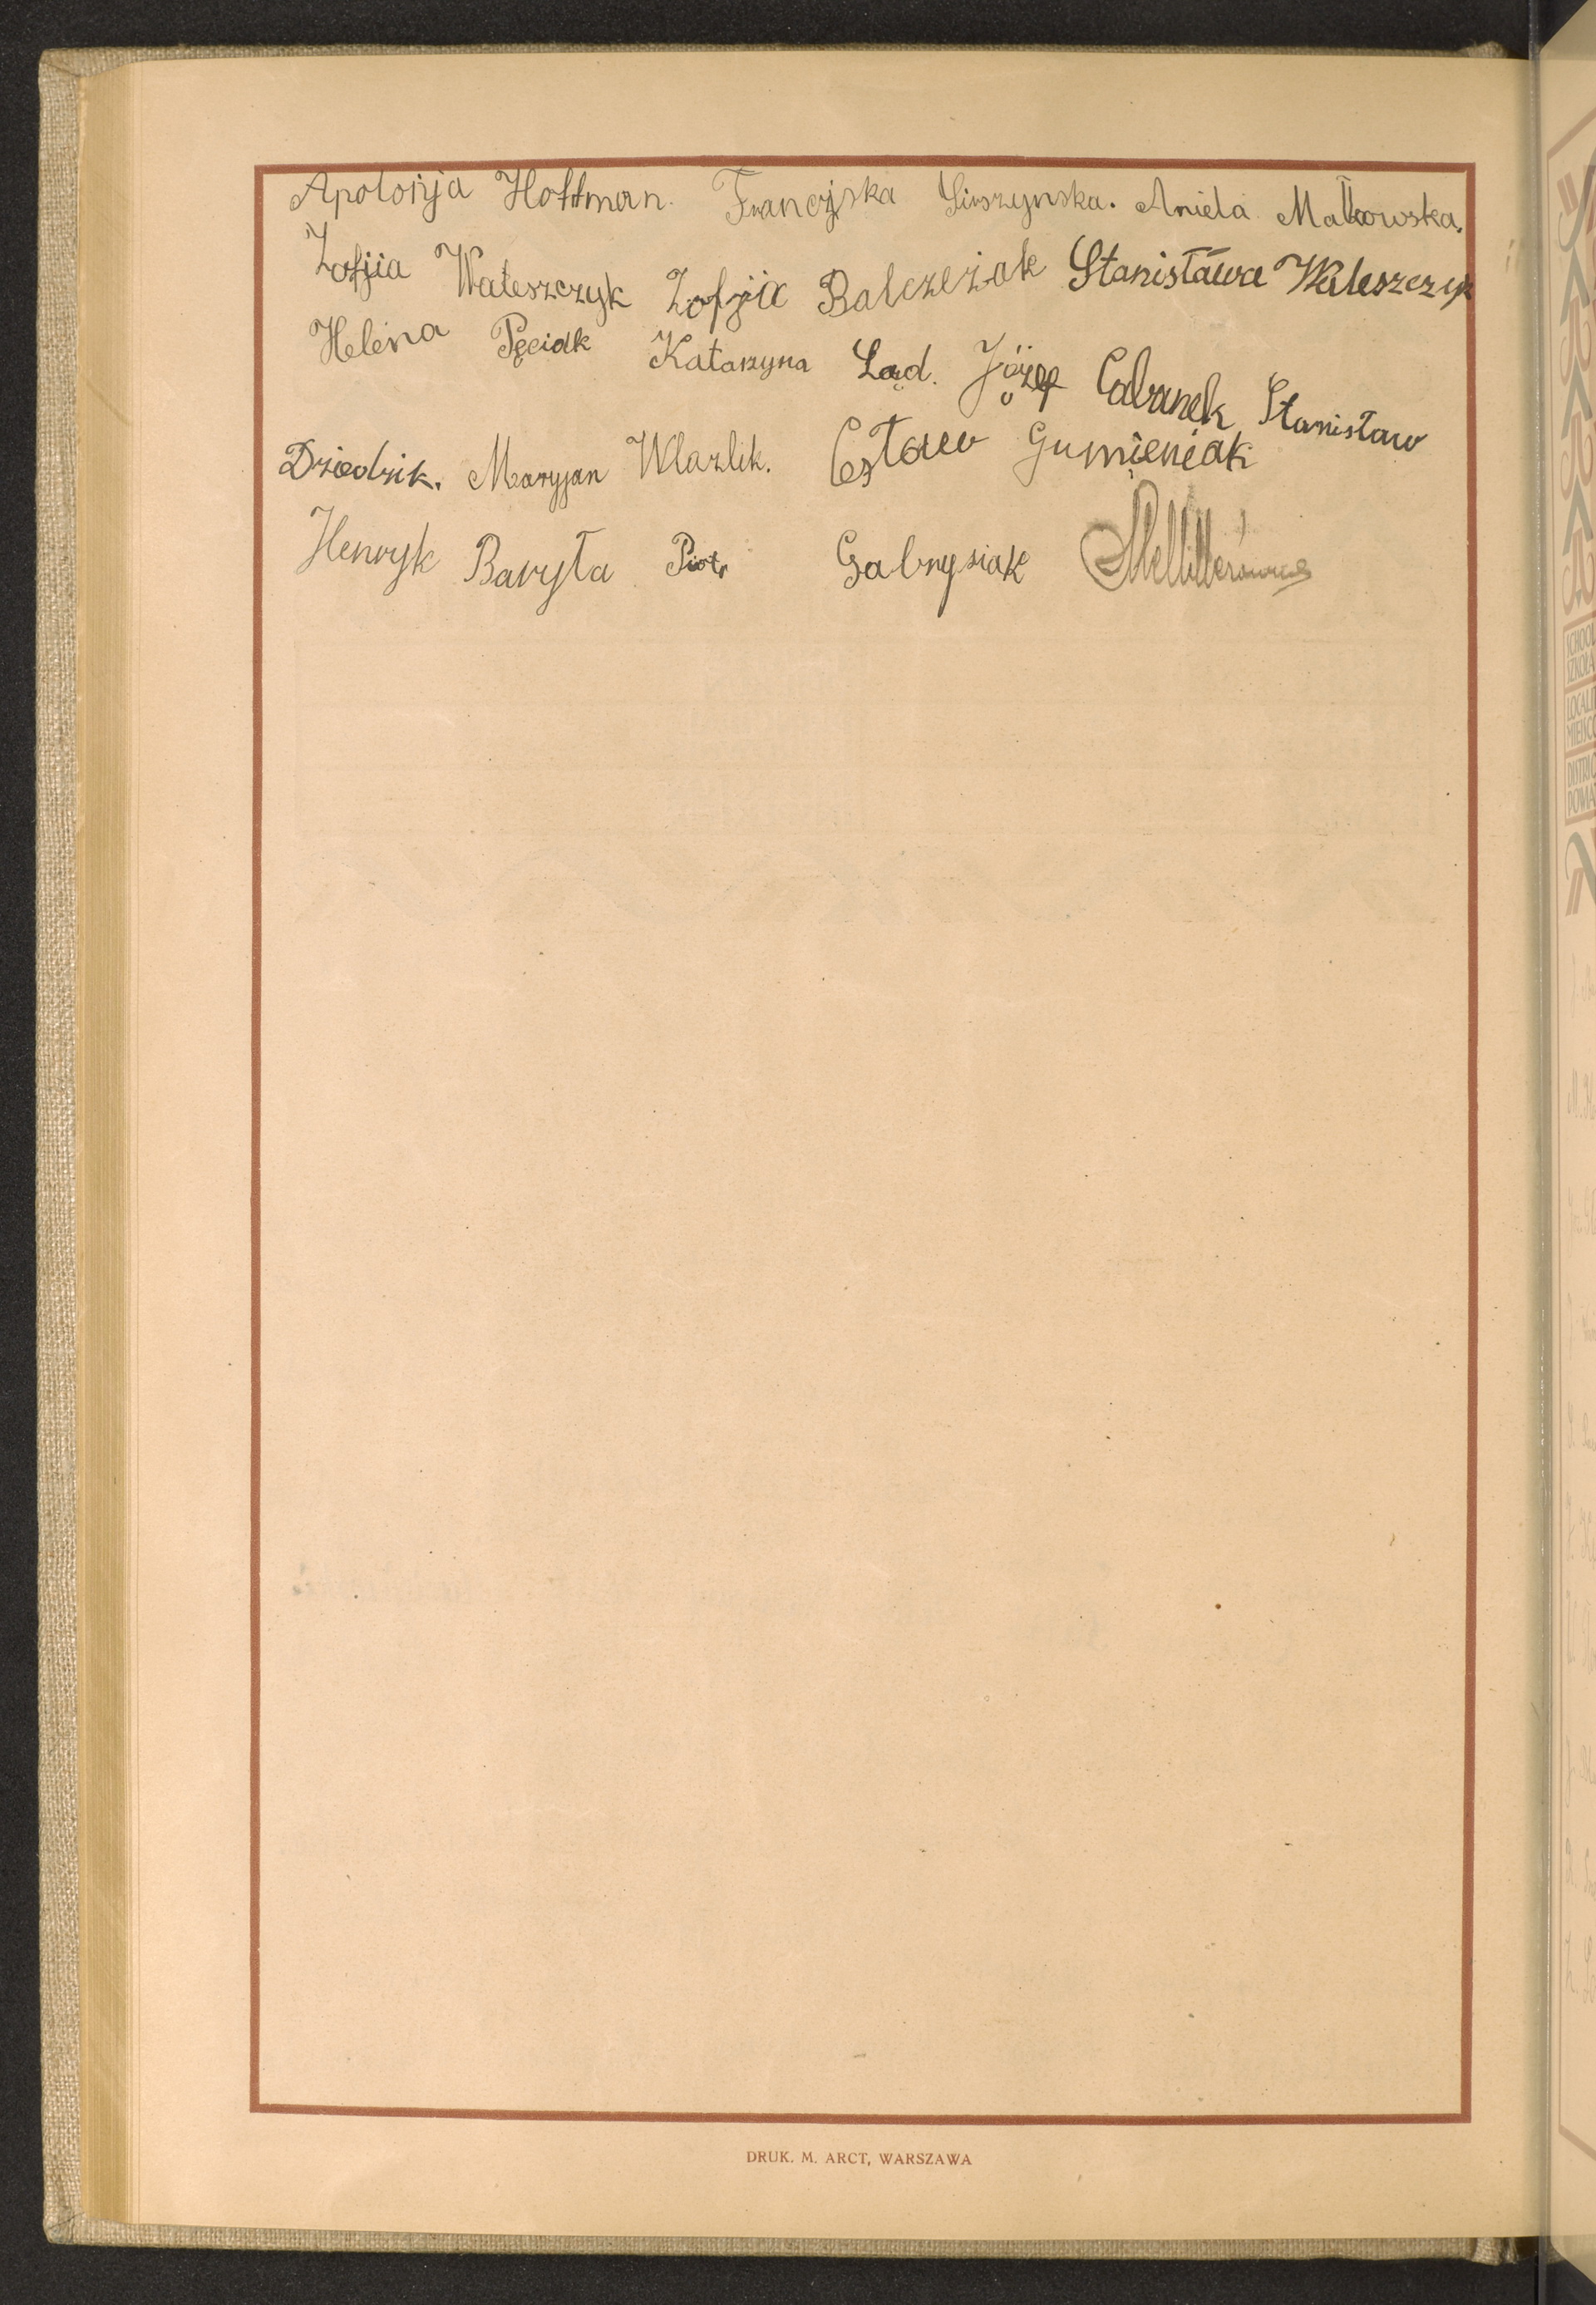 Apolonja Hoffman. Francijska Liwszynska. Aniela Małkowska.
Zofjia Waleszczyk Zofjia Balczeżak Stanisława Waleszczyk
Helena Pęciak Katarzyna Ląd. Józef Cabanek Stanisław
Dziedzik. Maryjan Wlazlik. Cesław Gumieniak
Henryk Baryła Piotr Gabrysiak
DRUK. M. ARCT, WARSZAWA